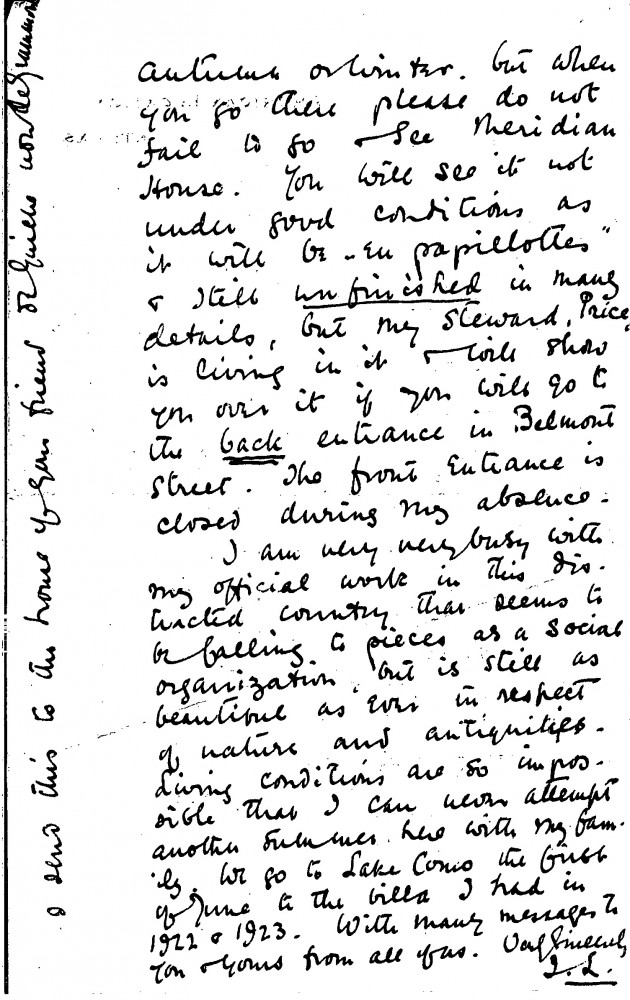 autumn or winter. but when
you go there please do not
fail to go & see Meridian
House. You will see it not
under good conditions as
it will be "en papillottes"
& still unfinished in many
details, but my steward, Price,
is living in it & will show
you over it if you will go to
the back entrance in Belmont
Street. The front entrance is
closed during my absence.
I am very very busy with
my official work in this dis-
tracted country that seems to
be falling to pieces as a social
organization, but is still as
beautiful as ever in respect
of nature and antiquities.
Living conditions are so impos-
sible that I can never attempt
another summer here with my fam-
ily. We go to Lake Como the first
of June to the villa I had in
1922 & 1923. With many messages to
you & yours from all of us. Very Sincerely
I. L.
I send this to the home of your friend de Guiche now de Grammont